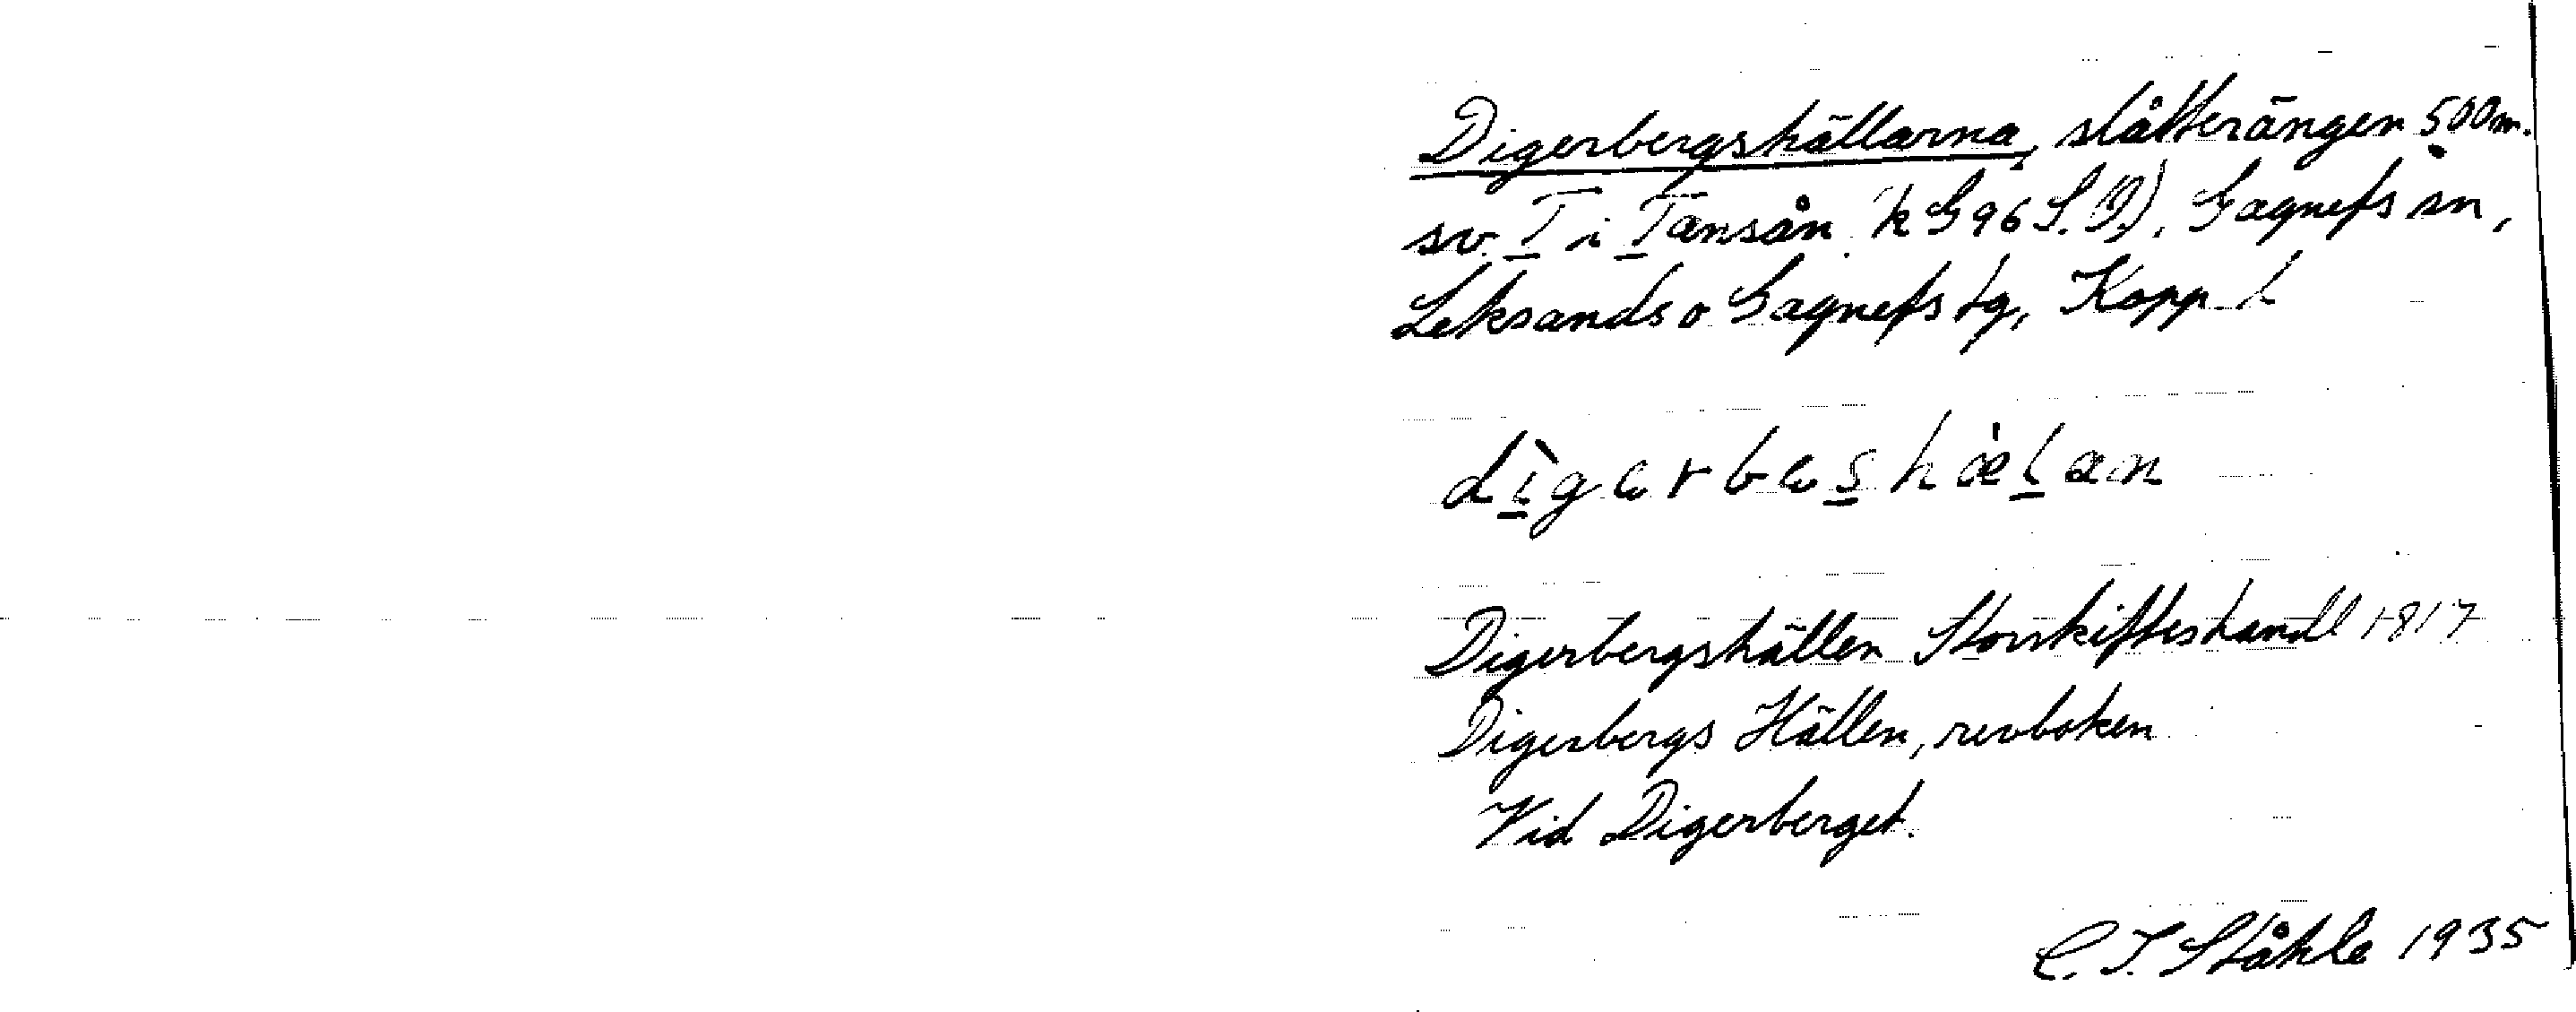 Digerbergshällarna, slåtterängen 500 m.
sv. T i Tansån (k G 96 S.O), Gagnefs sn,
Leksands o Gagnefs tg, Kopp. l
dìgərbəshæ̀lan
Digerbergshällen Storskifteshandl 1817
Digerbergs Hällen, revboken
Vid Digerberget.
C. I. Ståhle 1935